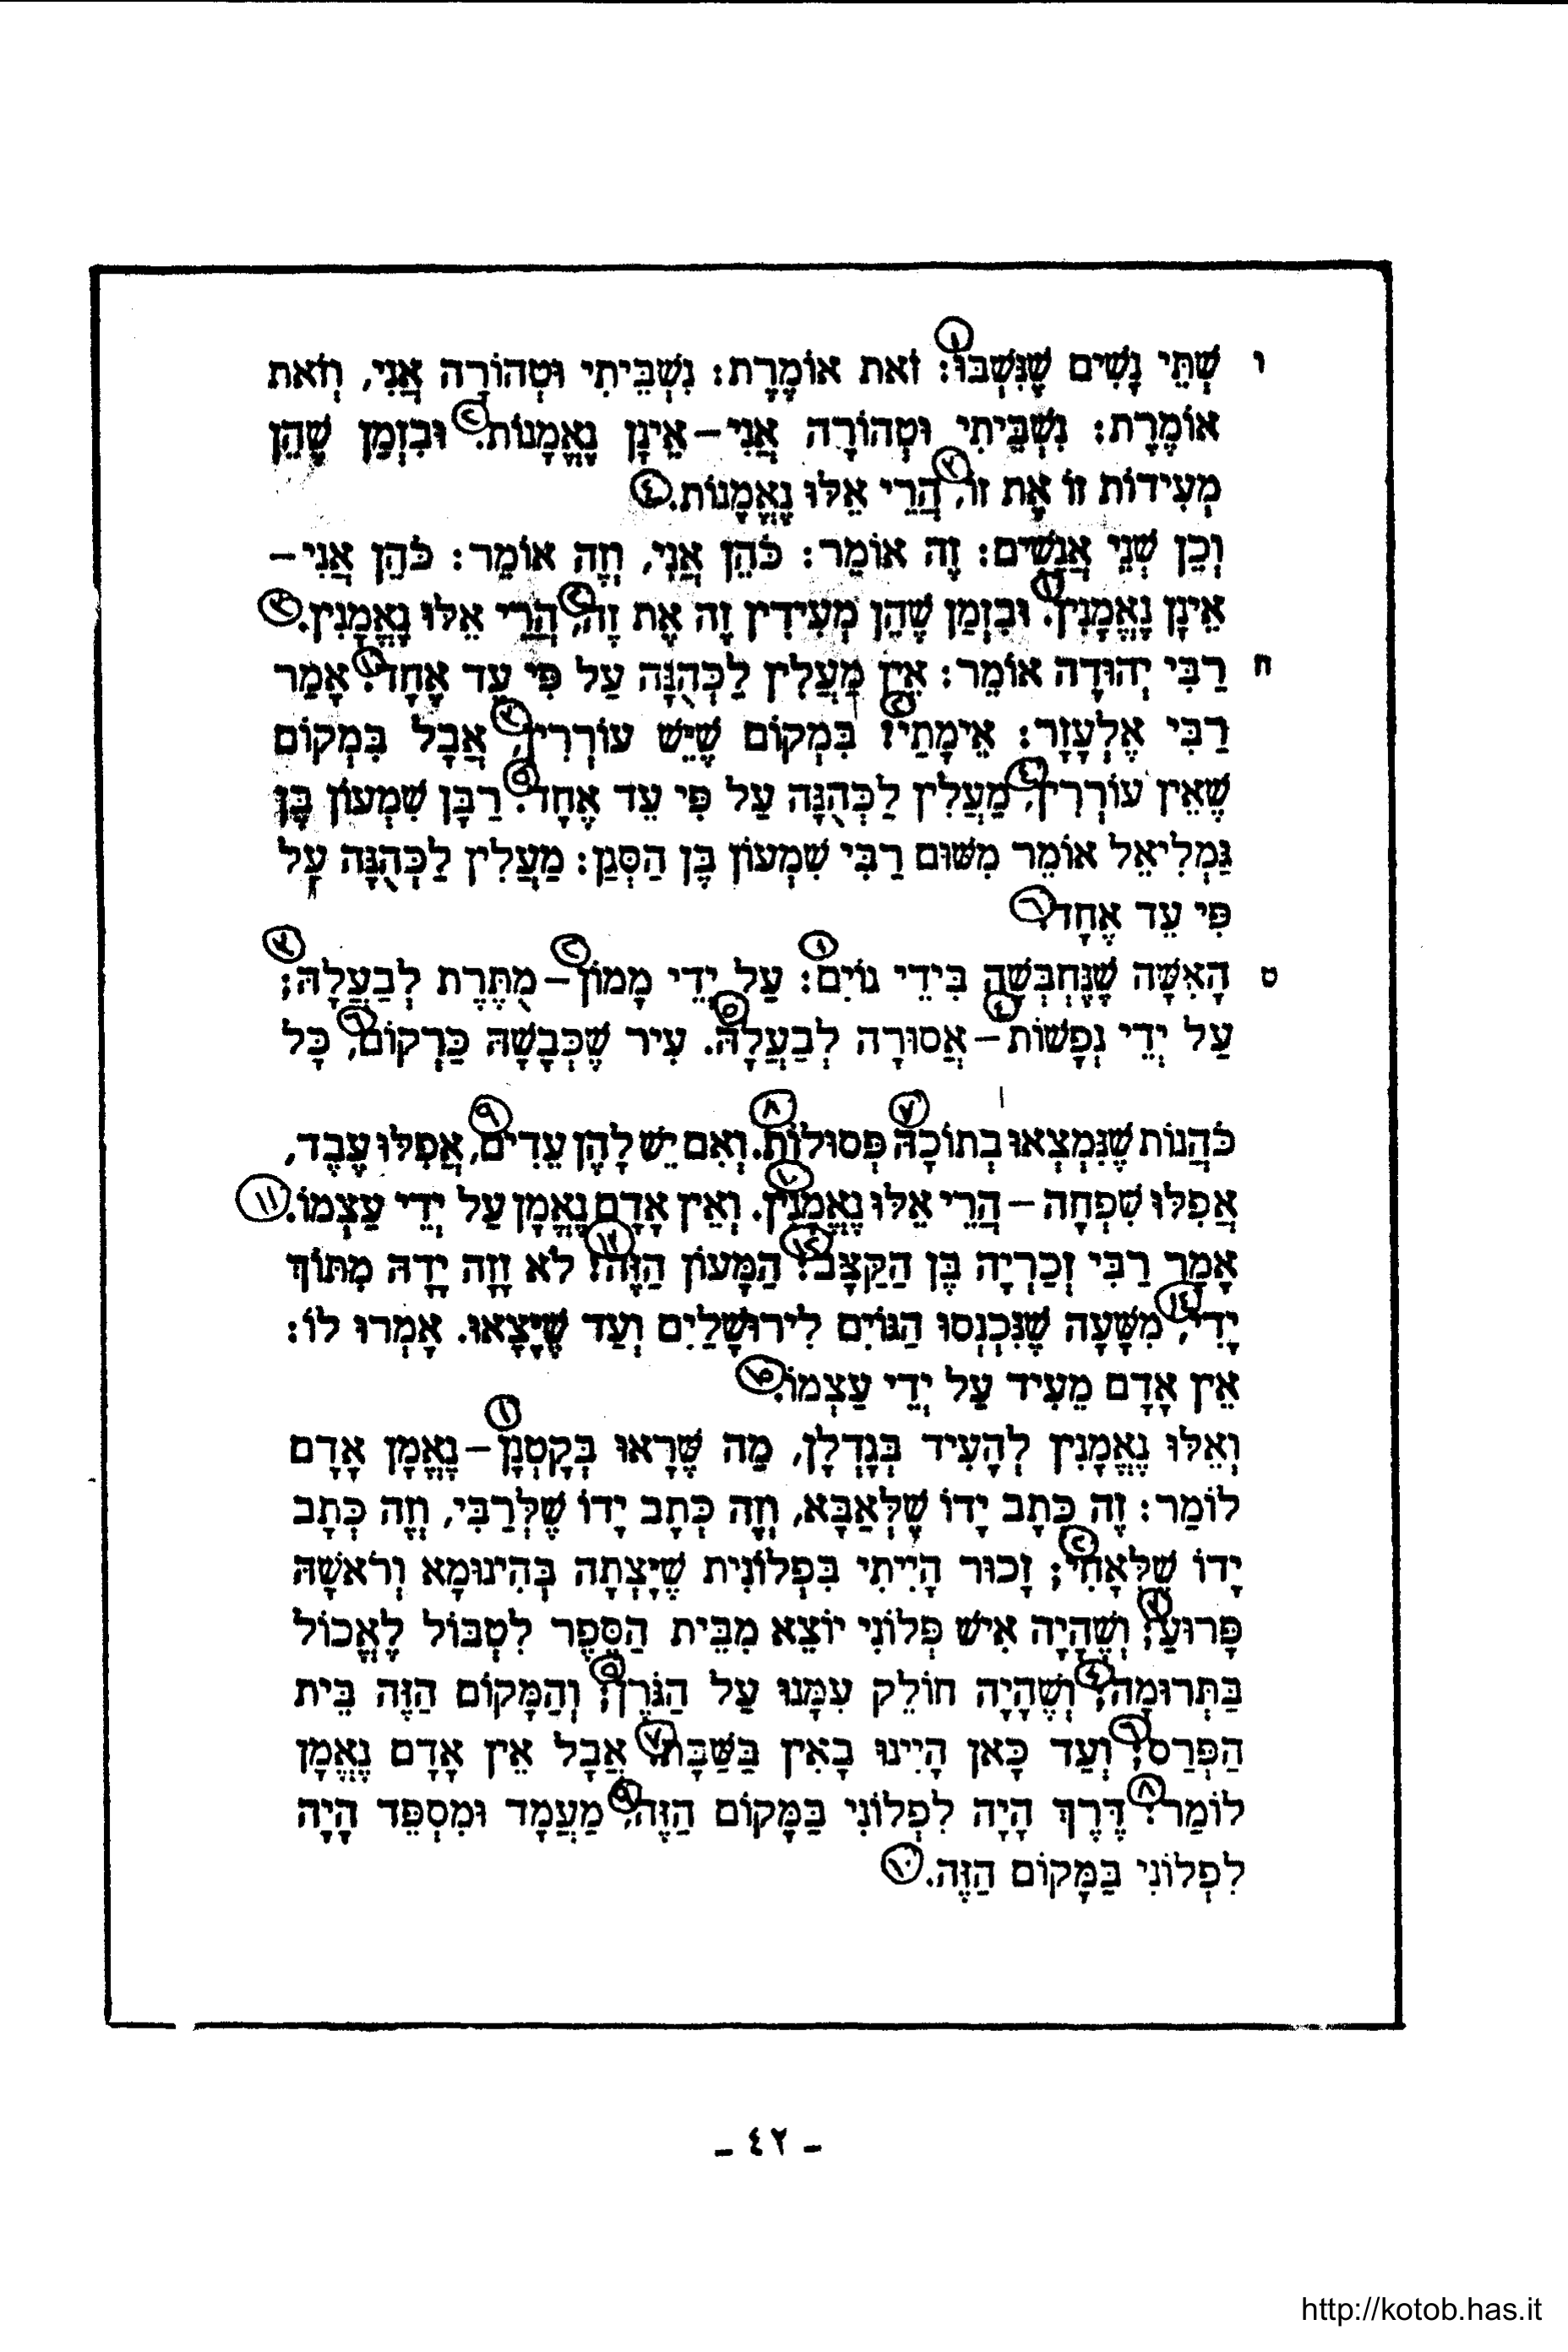 ו שְׁתֵּי נָשִׁים שֶׁנִּשְׁבּוּ①: זֹאת אוֹמֶרֶת: נִשְׁבֵּיתִי וּטְהוֹרָה אֲנִי, וְזֹאת
אוֹמֶרֶת: נִשְׁבֵּיתִי וּטְהוֹרָה אֲנִי – אֵינָן נֶאֱמָנוֹת. (٢) וּבִזְמַן שֶׁהֵן
מְעִידוֹת זוֹ אֶת זוֹ, (٣) הֲרֵי אֵלּוּ נֶאֱמָנוֹת. (٤)
וְכֵן שְׁנֵי אֲנָשִׁים: זֶה אוֹמֵר: כֹּהֵן אֲנִי, וְזֶה אוֹמֵר: כֹּהֵן אֲנִי –
אֵינָן נֶאֱמָנִין. (١) וּבִזְמַן שֶׁהֵן מְעִידִין זֶה אֶת זֶה, (٢) הֲרֵי אֵלּוּ נֶאֱמָנִין. (٣)
ח רַבִּי יְהוּדָה אוֹמֵר: אֵין מַעֲלִין לַכְּהֻנָּה עַל פִּי עֵד אֶחָד. (١) אָמַר
רַבִּי אֶלְעָזָר: אֵימָתַי? (٢) בִּמְקוֹם שֶׁיֵּשׁ עוֹרְרִין, (٣) אֲבָל בִּמְקוֹם
שֶׁאֵין עוֹרְרִין, (٤) מַעֲלִין לַכְּהֻנָּה עַל פִּי עֵד אֶחָד. (٥) רַבָּן שִׁמְעוֹן בֶּן
גַּמְלִיאֵל אוֹמֵר מִשּׁוּם רַבִּי שִׁמְעוֹן בֶּן הַסְּגָן: מַעֲלִין לַכְּהֻנָּה עַל
פִּי עֵד אֶחָד. (٦)
ט הָאִשָּׁה שֶׁנֶּחְבְּשָׁה בִּידֵי גוֹיִם: (١) עַל יְדֵי מָמוֹן (٢) – מֻתֶּרֶת לְבַעֲלָהּ; (٣)
עַל יְדֵי נְפָשׁוֹת (٤) – אֲסוּרָה לְבַעֲלָהּ. (٥) עִיר שֶׁכְּבָשָׁהּ כַּרְקוֹם, (٦) כָּל
כֹּהֲנוֹת שֶׁנִּמְצְאוּ בְתוֹכָהּ (٧) פְּסוּלוֹת. (٨) וְאִם יֵשׁ לָהֶן עֵדִים, (٩) אֲפִלּוּ עֶבֶד,
אֲפִלּוּ שִׁפְחָה – הֲרֵי אֵלּוּ נֶאֱמָנִין. (١٠) וְאֵין אָדָם נֶאֱמָן עַל יְדֵי עַצְמוֹ. (١١)
אָמַר רַבִּי זְכַרְיָה בֶּן הַקַּצָּב: (١٢) הַמָּעוֹן הַזֶּה! (١٣) לֹא זָזָה יָדָהּ מִתּוֹךְ
יָדִי, (١٤) מִשָּׁעָה שֶׁנִּכְנְסוּ הַגּוֹיִם לִירוּשָׁלַיִם וְעַד שֶׁיָּצָאוּ. אָמְרוּ לוֹ:
אֵין אָדָם מֵעִיד עַל יְדֵי עַצְמוֹ. (١٥)
וְאֵלּוּ נֶאֱמָנִין לְהָעִיד בְּגָדְלָן, מַה שֶּׁרָאוּ בְּקָטְנָן (١) – נֶאֱמָן אָדָם
לוֹמַר: זֶה כְּתָב יָדוֹ שֶׁלְּאַבָּא, וְזֶה כְּתָב יָדוֹ שֶׁלְּרַבִּי, וְזֶה כְּתָב
יָדוֹ שֶׁלְּאָחִי; (٢) זָכוּר הָיִיתִי בִּפְלוֹנִית שֶׁיָּצְתָה בְּהִינוּמָא וְרֹאשָׁהּ
פָּרוּעַ; (٣) וְשֶׁהָיָה אִישׁ פְּלוֹנִי יוֹצֵא מִבֵּית הַסֵּפֶר לִטְבּוֹל לֶאֱכוֹל
בַּתְּרוּמָה; (٤) וְשֶׁהָיָה חוֹלֵק עִמָּנוּ עַל הַגֹּרֶן; (٥) וְהַמָּקוֹם הַזֶּה בֵּית
הַפְּרַס; (٦) וְעַד כָּאן הָיִינוּ בָאִין בַּשַּׁבָּת. (٧) אֲבָל אֵין אָדָם נֶאֱמָן
לוֹמַר: (٨) דֶּרֶךְ הָיָה לִפְלוֹנִי בַּמָּקוֹם הַזֶּה, (٩) מַעֲמָד וּמִסְפֵּד הָיָה
לִפְלוֹנִי בַּמָּקוֹם הַזֶּה. (١٠)
- ٤٢ -
http://kotob.has.it